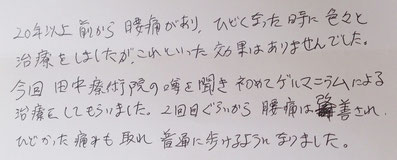 20年以上前から腰痛があり、ひどくなった時に色々と
治療をしましたが、これといった効果はありませんでした。
今回 田中療術院の噂を聞き 初めてゲルマニウムによる
治療をしてもらいました。2回目ぐらいから 腰痛は改善され、
ひどかった痛みも取れ 普通に歩けるようになりました。